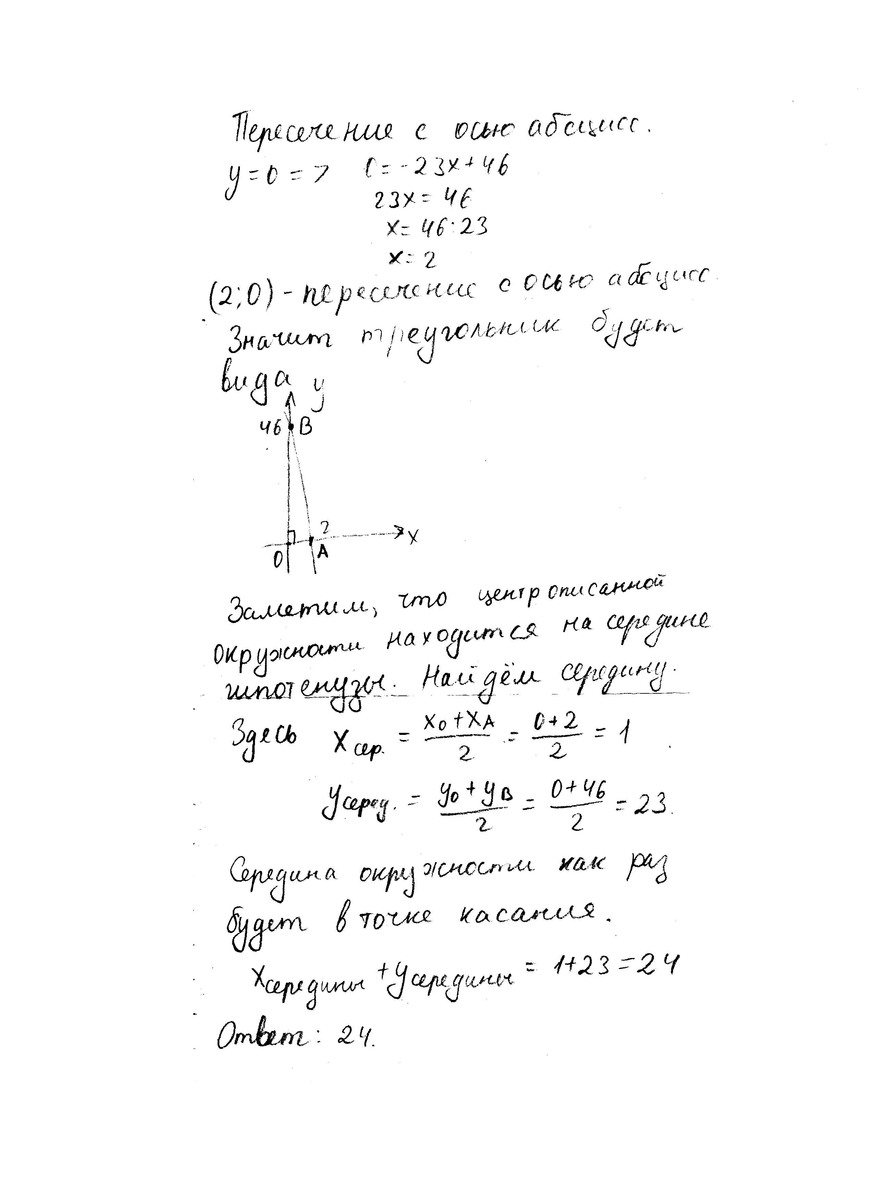 Пересечение с осью абсцисс.
y=0 => 0=-23x+46
23x=46
x=46:23
x=2
(2;0)-пересечение с осью абсцисс
Значит треугольник будет
вида y
46 B
2
0 A x
Заметим, что центр описанной
окружности находится на середине
гипотенузы. Найдём середину.
Здесь X сер. = (x₀+x_A)/2 = (0+2)/2 = 1
Y серед. = (y₀+y_B)/2 = (0+46)/2 = 23.
Середина окружности как раз
будет в точке касания.
x середины + y середины = 1+23=24
Ответ: 24.